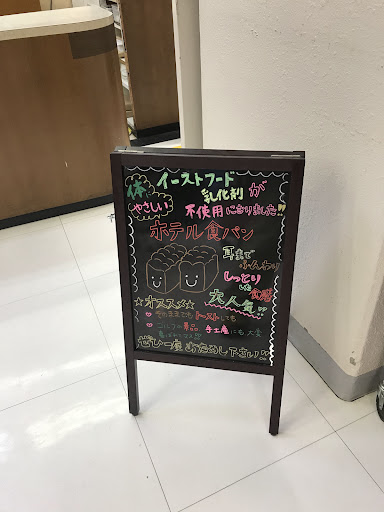 体に
やさしい
イーストフード
乳化剤が
不使用になりました!!
ホテル食パン
耳まで
ふんわり
しっとり
した食感
大人気!!
☆オススメ☆
♥ そのままでも トーストしても
♥ ゴルフの景品 手土産にも 大変
ぜひ一度 お試し下さい!!